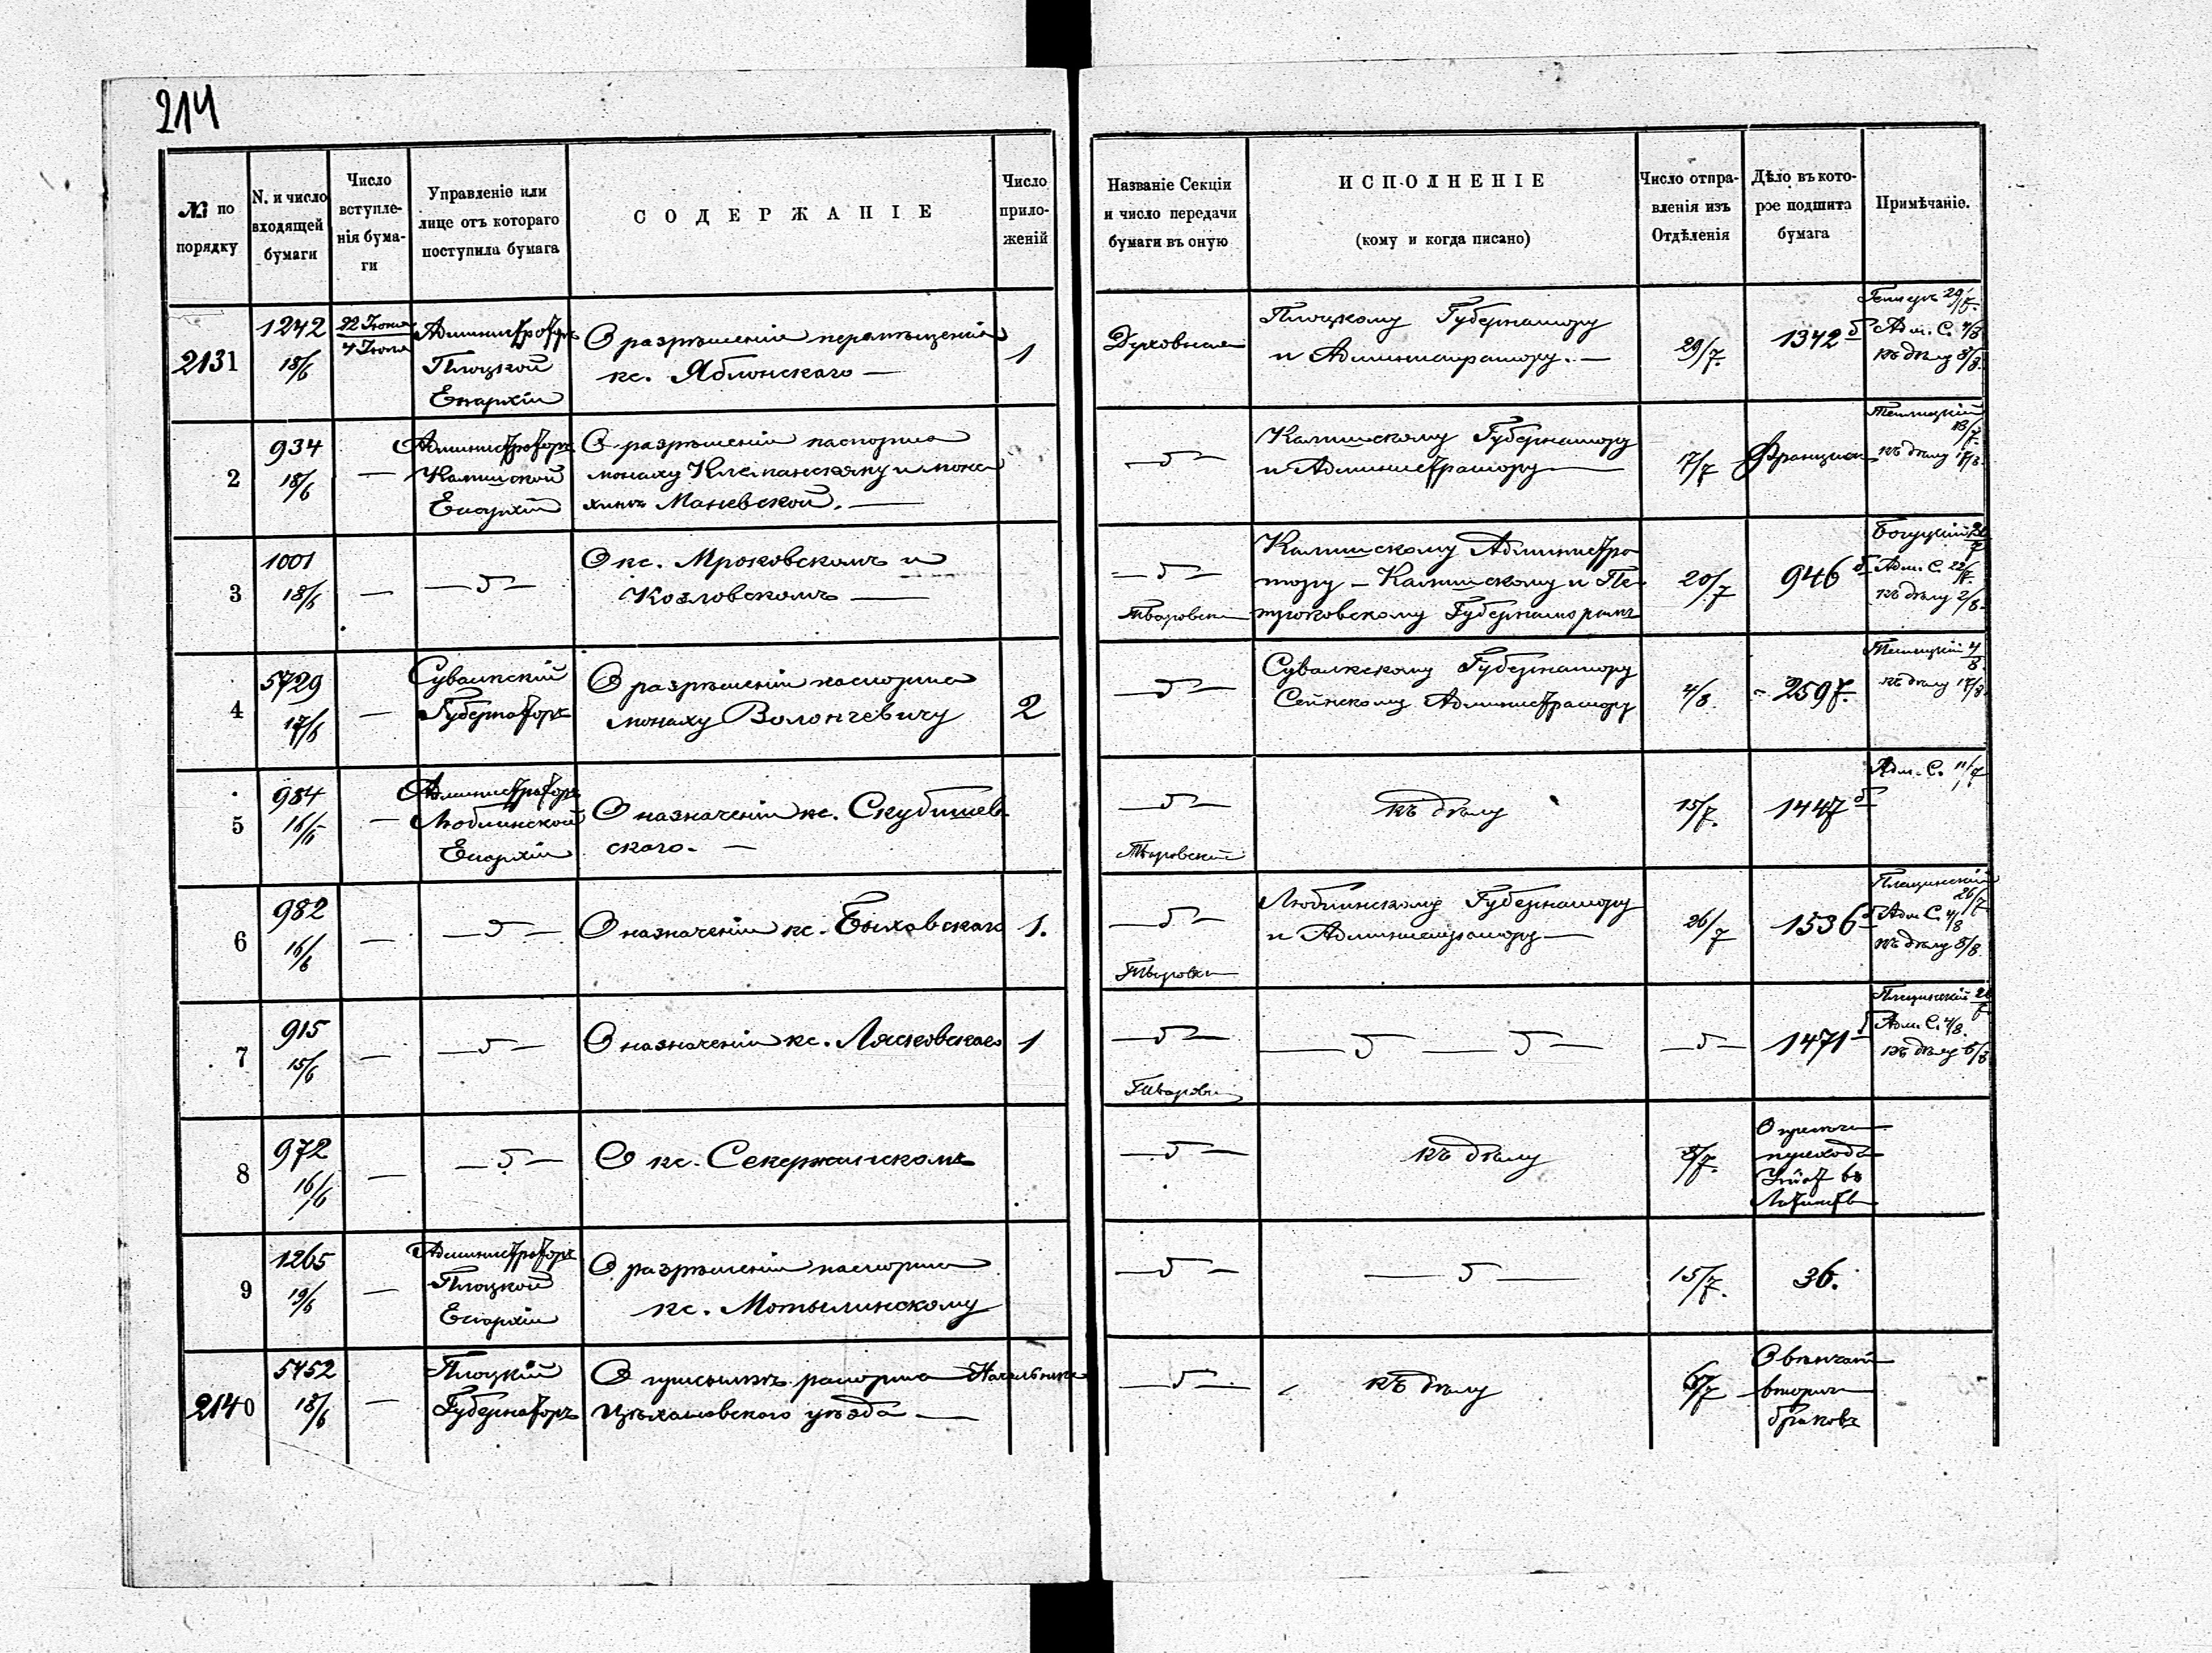 214
№ по порядку
N. и число входящей бумаги
Число вступле-нія бума-ги
Управленіе или лице отъ котораго поступила бумага
СОДЕРЖАНІЕ
Число прило-женій
Названіе Секціи и число передачи бумаги въ оную
ИСПОЛНЕНІЕ
(кому и когда писано)
Число отпра-вленія изъ Отдѣленія
Дѣло въ кото-рое подшита бумага
Примѣчаніе.
2131
1242
18/6
22 Іюня
4 Іюля
Администраторъ
Плоцкой
Епархіи
О разрѣшеніи перемѣщенія
кс. Яблонскаго —
1
Духовная
Плоцкому Губернатору
и Администратору. —
29/7.
1342 б
Адм. С. 4/8
къ дѣлу 8/8.
2
934
18/6
—
Администраторъ
Калишской
Епархіи
О разрѣшеніи паспорта
монаху и мона
хинѣ Маневской. —
— 5 —
Калишскому Губернатору
и Администратору —
17/7
13/7
къ дѣлу 17/8.
3
1001
18/6
—
— 5 —
О кс. Мроковскомъ и
Козловскомъ —
— 5 —
Калишскому Администра
тору – Калишскому и Пе
троковскому Губернаторамъ
20/7
946 б
Адм. С. 22/7.
къ дѣлу 2/8.
4
5729
17/6
—
Сувалкскій
Губернаторъ
О разрѣшеніи паспорта
монаху Волончевичу
2
— 5 —
Сувалкскому Губернатору
Сейнскому Администратору
4/8.
2597.
4/8.
къ дѣлу 17/8.
5
984
16/6
—
Администраторъ
Люблинской
Епархіи
О назначеніи кс. Скубишев
скаго. —
— 5 —
къ дѣлу
15/7.
1447 б
Адм. С. 11/7
6
982
16/6
—
— 5 —
О назначеніи кс. Быховскаго
1.
— 5 —
Люблинскому Губернатору
и Администратору —
26/7
1536 б
26/7
Адм. С. 4/8
къ дѣлу 8/8.
7
915
15/6
—
— 5 —
О назначеніи кс. Лясковскаго
1
— 5 —
— 5 — 5 —
— 5 —
1471 б
Адм. С. 4/8.
къ дѣлу 8/8
8
972
16/6
—
— 5 —
О кс. Секержинскомъ
— 5 —
къ дѣлу
8/7.
9
1265
19/6
—
Администраторъ
Плоцкой
Епархіи
О разрѣшеніи паспорта
кс. Мотылинскому
— 5 —
— 5 —
15/7.
36.
2140
5452
18/6
—
Плоцкій
Губернаторъ
О присылкѣ рапорта Начальника
Цѣхановскаго уѣзда —
— 5 —
къ дѣлу
6/7
О вѣнчан
вторич
браковъ